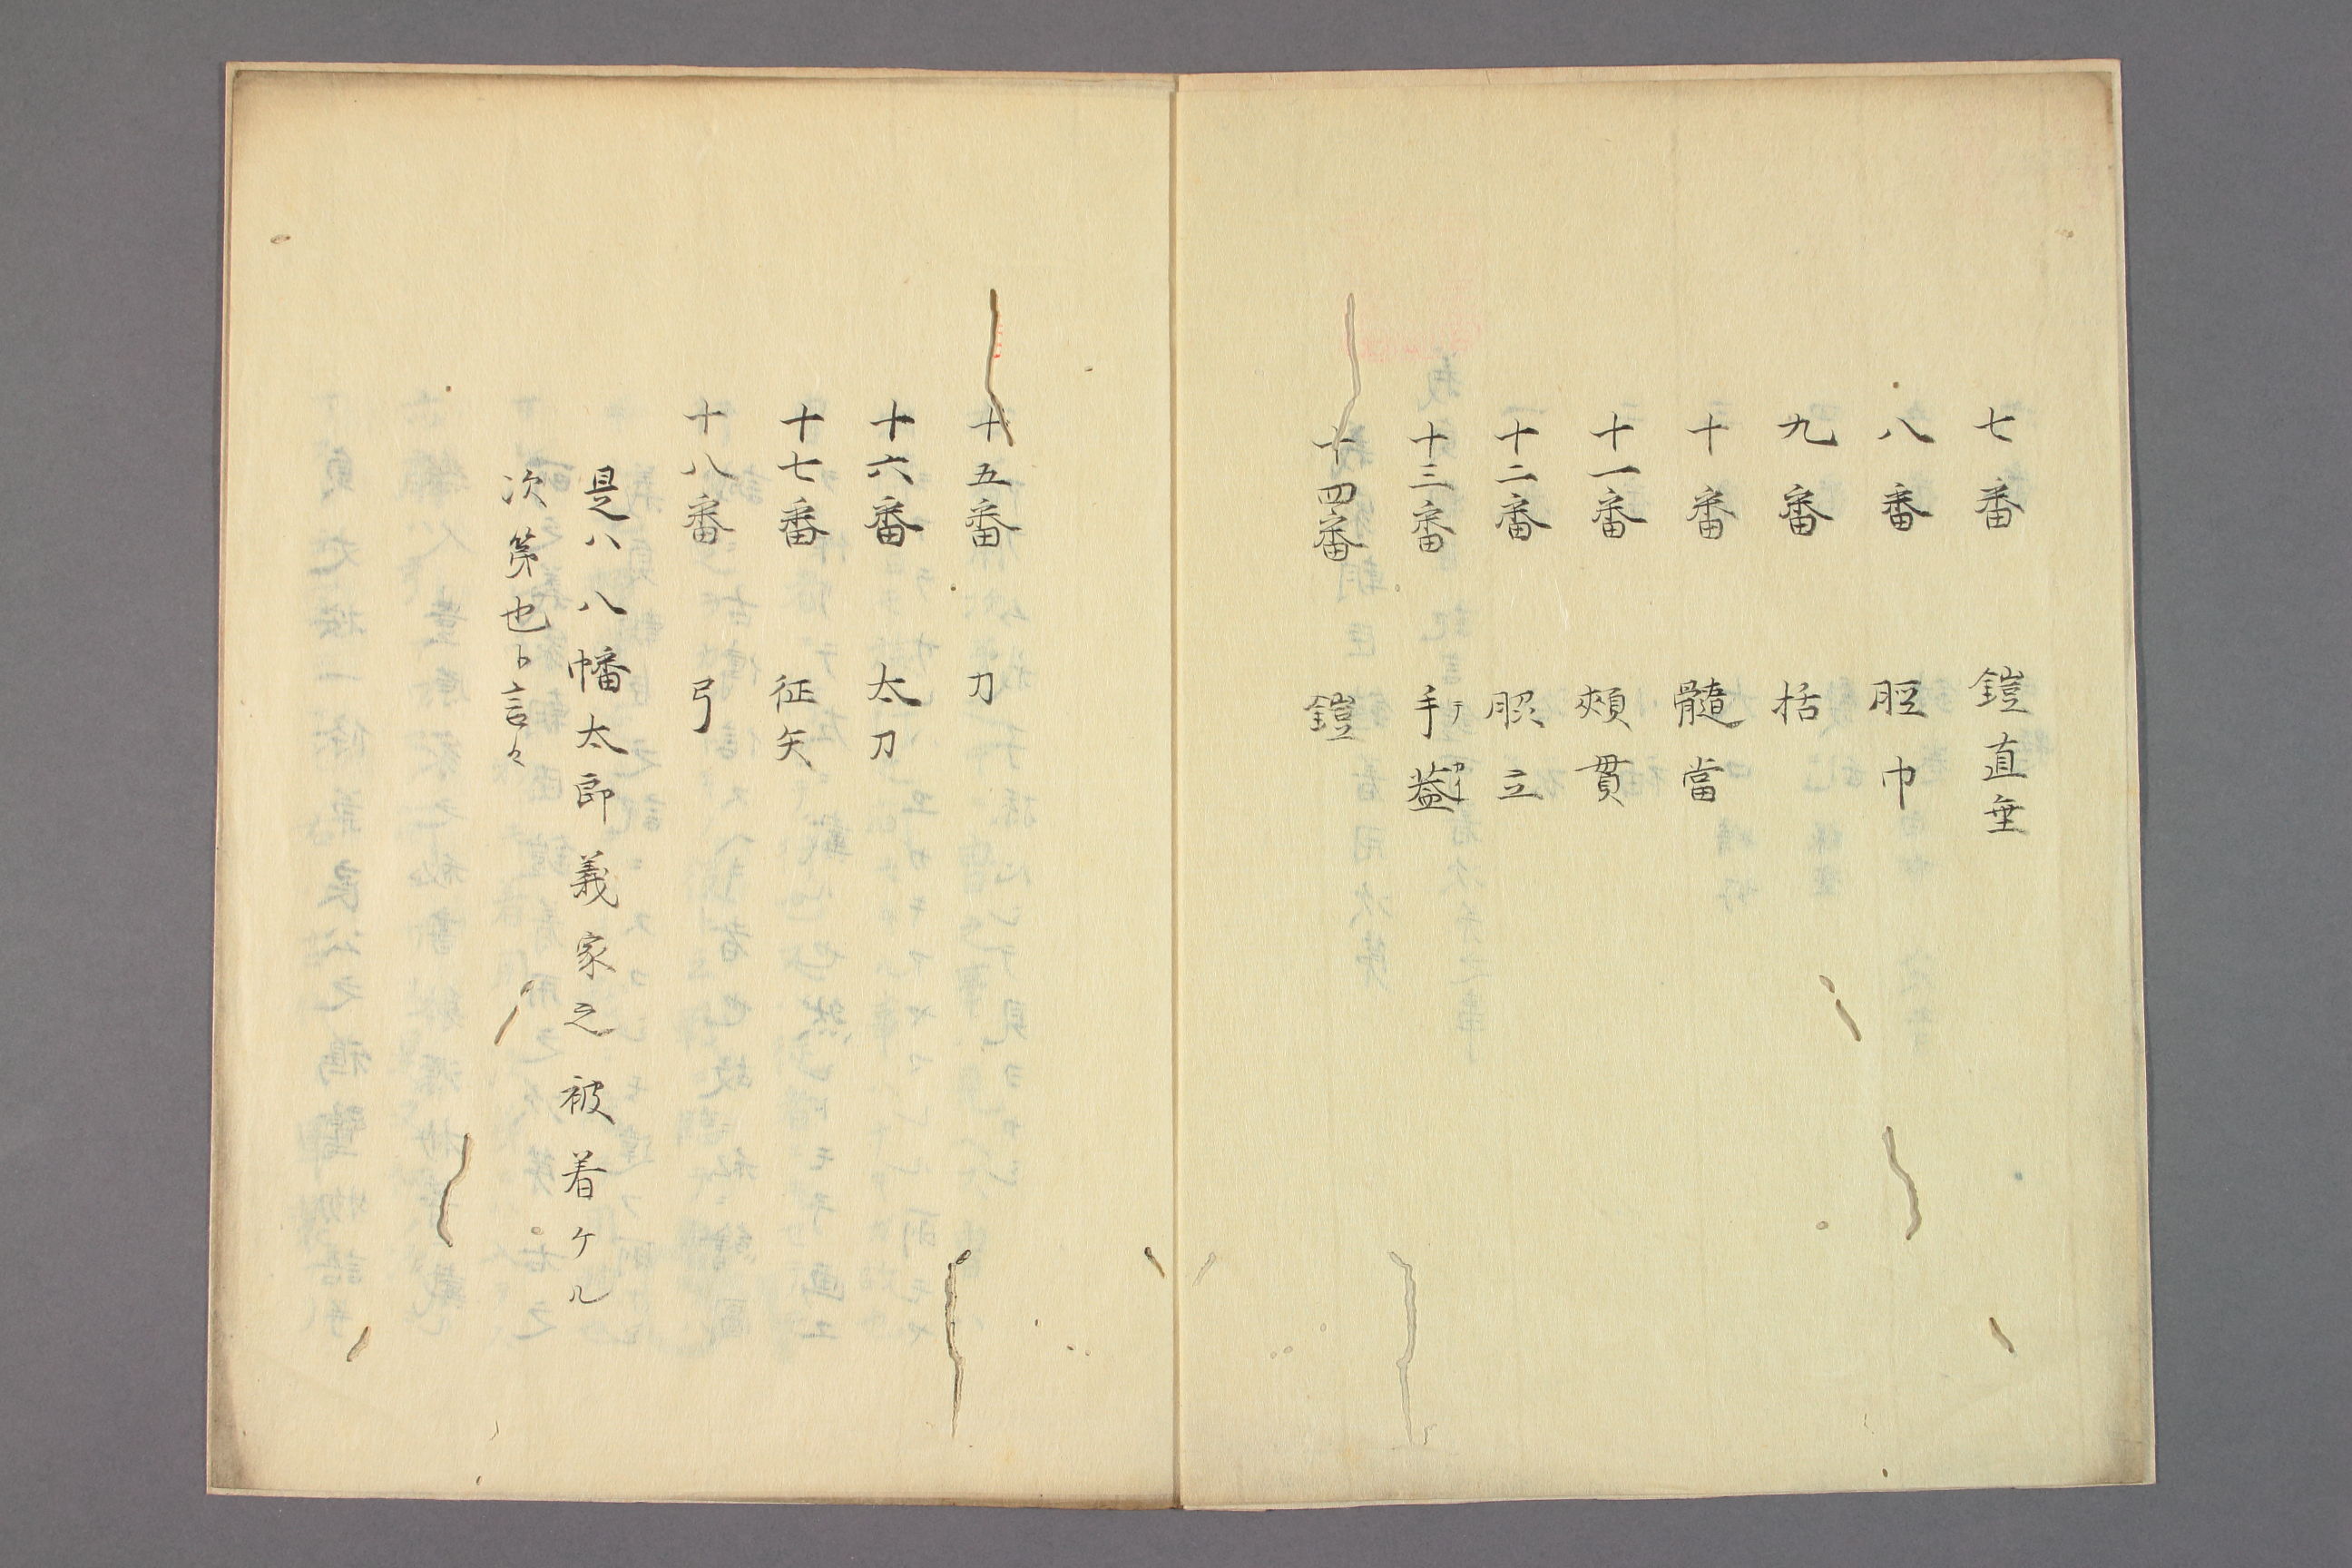 七番 鎧直垂
八番 脛巾
九番 括
十番 髄當
十一番 頰貫
十二番 脵立
十三番 手蓋
テ カイ
十四番 鎧
十五番 刀
十六番 太刀
十七番 征矢
十八番 弓
是ハ八幡太郎義家之被着ケル
次第也ト言々